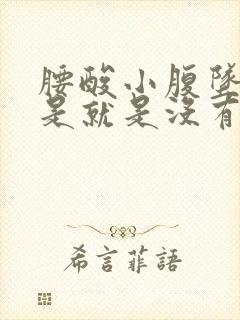 腰酸小腹墜
是就是沒有
希言菲語